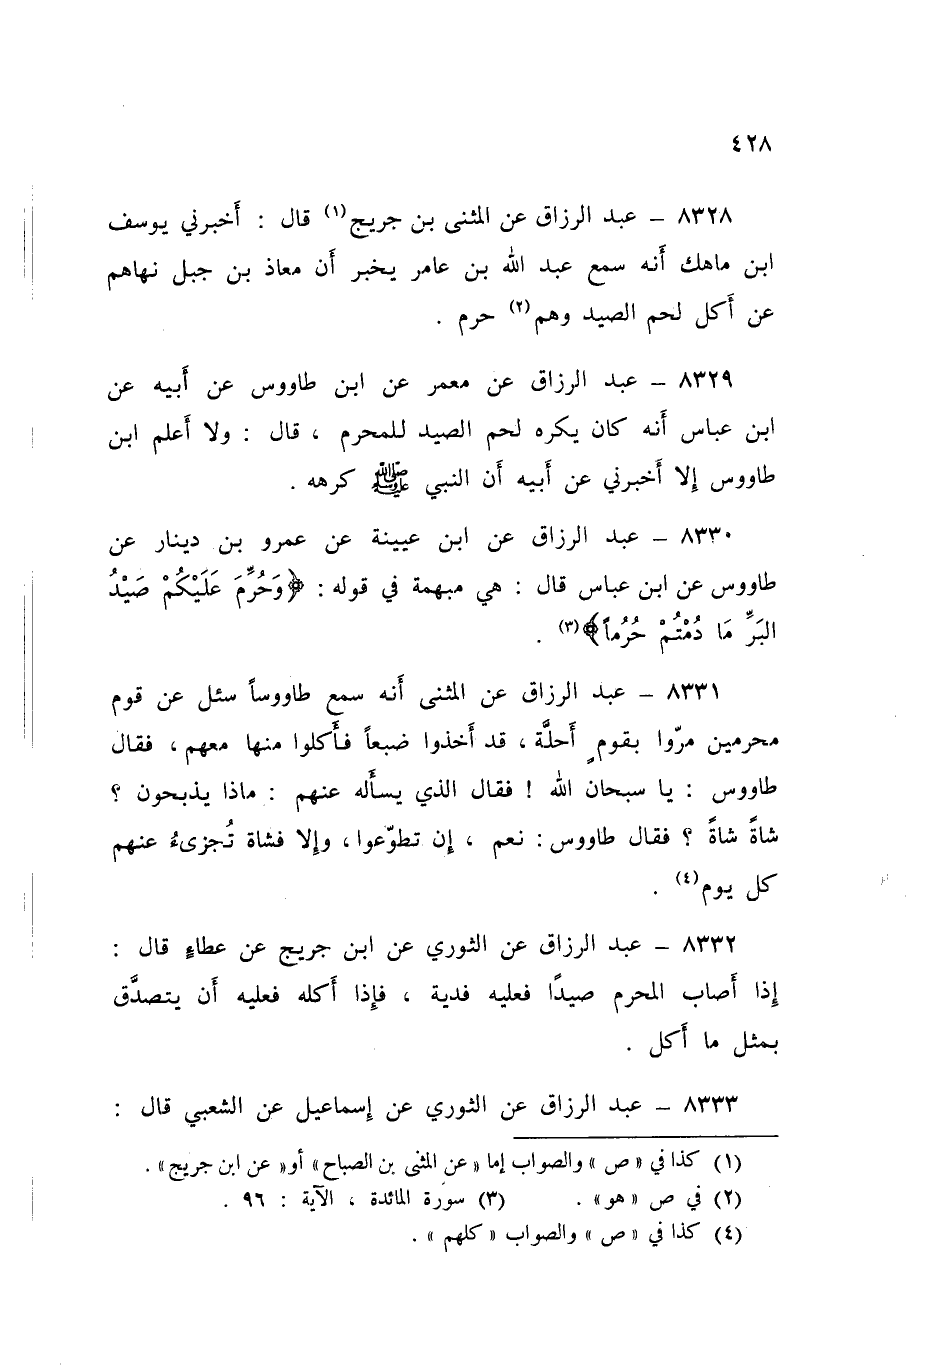 ٤٢٨
٨٣٢٨ – عبد الرزاق عن المثنى بن جريج(١) قال : أخبرني يوسف
ابن ماهك أنه سمع عبد الله بن عامر يخبر أن معاذ بن جبل نهاهم
عن أكل لحم الصيد وهم(٢) حرم .
٨٣٢٩ – عبد الرزاق عن معمر عن ابن طاووس عن أبيه عن
ابن عباس أنه كان يكره لحم الصيد للمحرم ، قال : ولا أعلم ابن
طاووس إلا أخبرني عن أبيه أن النبي ﷺ كرهه .
٨٣٣٠ – عبد الرزاق عن ابن عيينة عن عمرو بن دينار عن
طاووس عن ابن عباس قال : هي مبهمة في قوله : ﴿وَحُرِّمَ عَلَيْكُمْ صَيْدُ
البَرِّ مَا دُمْتُمْ حُرُماً﴾(٣) .
٨٣٣١ – عبد الرزاق عن المثنى أنه سمع طاووساً سئل عن قوم
محرمين مرّوا بقومٍ أحلَّة ، قد أخذوا ضبعاً فأكلوا منها معهم ، فقال
طاووس : يا سبحان الله ! فقال الذي يسأله عنهم : ماذا يذبحون ؟
شاةً شاةً ؟ فقال طاووس : نعم ، إن تطوّعوا ، وإلا فشاة تُجزىءُ عنهم
كل يوم(٤) .
٨٣٣٢ – عبد الرزاق عن الثوري عن ابن جريج عن عطاءٍ قال :
إذا أصاب المحرم صيدًا فعليه فدية ، فإذا أكله فعليه أن يتصدَّق
بمثل ما أكل .
٨٣٣٣ – عبد الرزاق عن الثوري عن إسماعيل عن الشعبي قال :
(١) كذا في « ص » والصواب إما « عن المثنى بن الصباح » أو « عن ابن جريج » .
(٢) في ص « هو » . (٣) سورة المائدة ، الآية : ٩٦ .
(٤) كذا في « ص » والصواب « كلهم » .